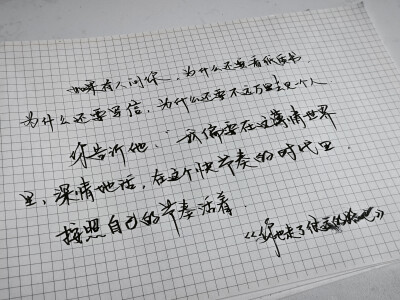 如果有人问你，为什么还要看纸质书
为什么还要写信，为什么还要不远万里去见个人
你告诉他，我偏要在这薄情世界
里，深情地活，在这个快节奏的时代里
按照自己的节奏活着